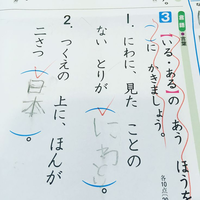 3 【いる・ある】の あう ほうを
（ ）に かきましょう。
各10点（20
1. にわに、見た ことの
ない とりが（にわとり）。
2. つくえの 上に、ほんが
二さつ（日本）。